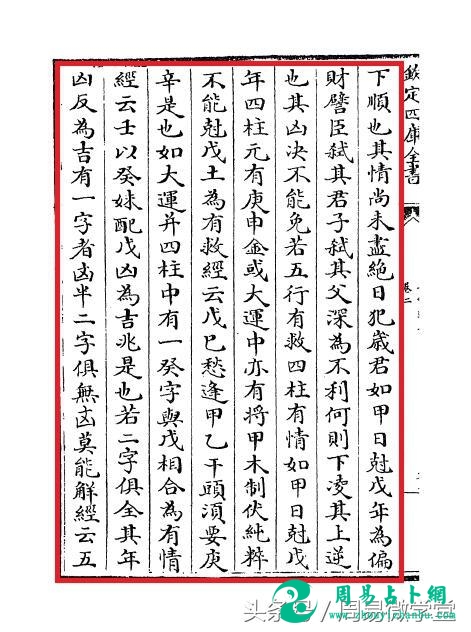 欽定四庫全書
卷二
下順也其情尚未盡絕日犯歲君如甲日尅戊年為偏
財譬臣弒其君子弒其父深為不利何則下凌其上逆
也其凶决不能免若五行有救四柱有情如甲日尅戊
年四柱元有庚申金或大運中亦有將甲木制伏純粹
不能尅戊土為有救經云戊巳愁逢甲乙干頭須要庚
辛是也如大運并四柱中有一癸字與戊相合為有情
經云壬以癸妹配戊凶為吉兆是也若二字俱全其年
凶反為吉有一字者凶半二字俱無凶莫能解經云五
周易占卜網
www.zhouyizhanbu.com
头条@周易微学堂